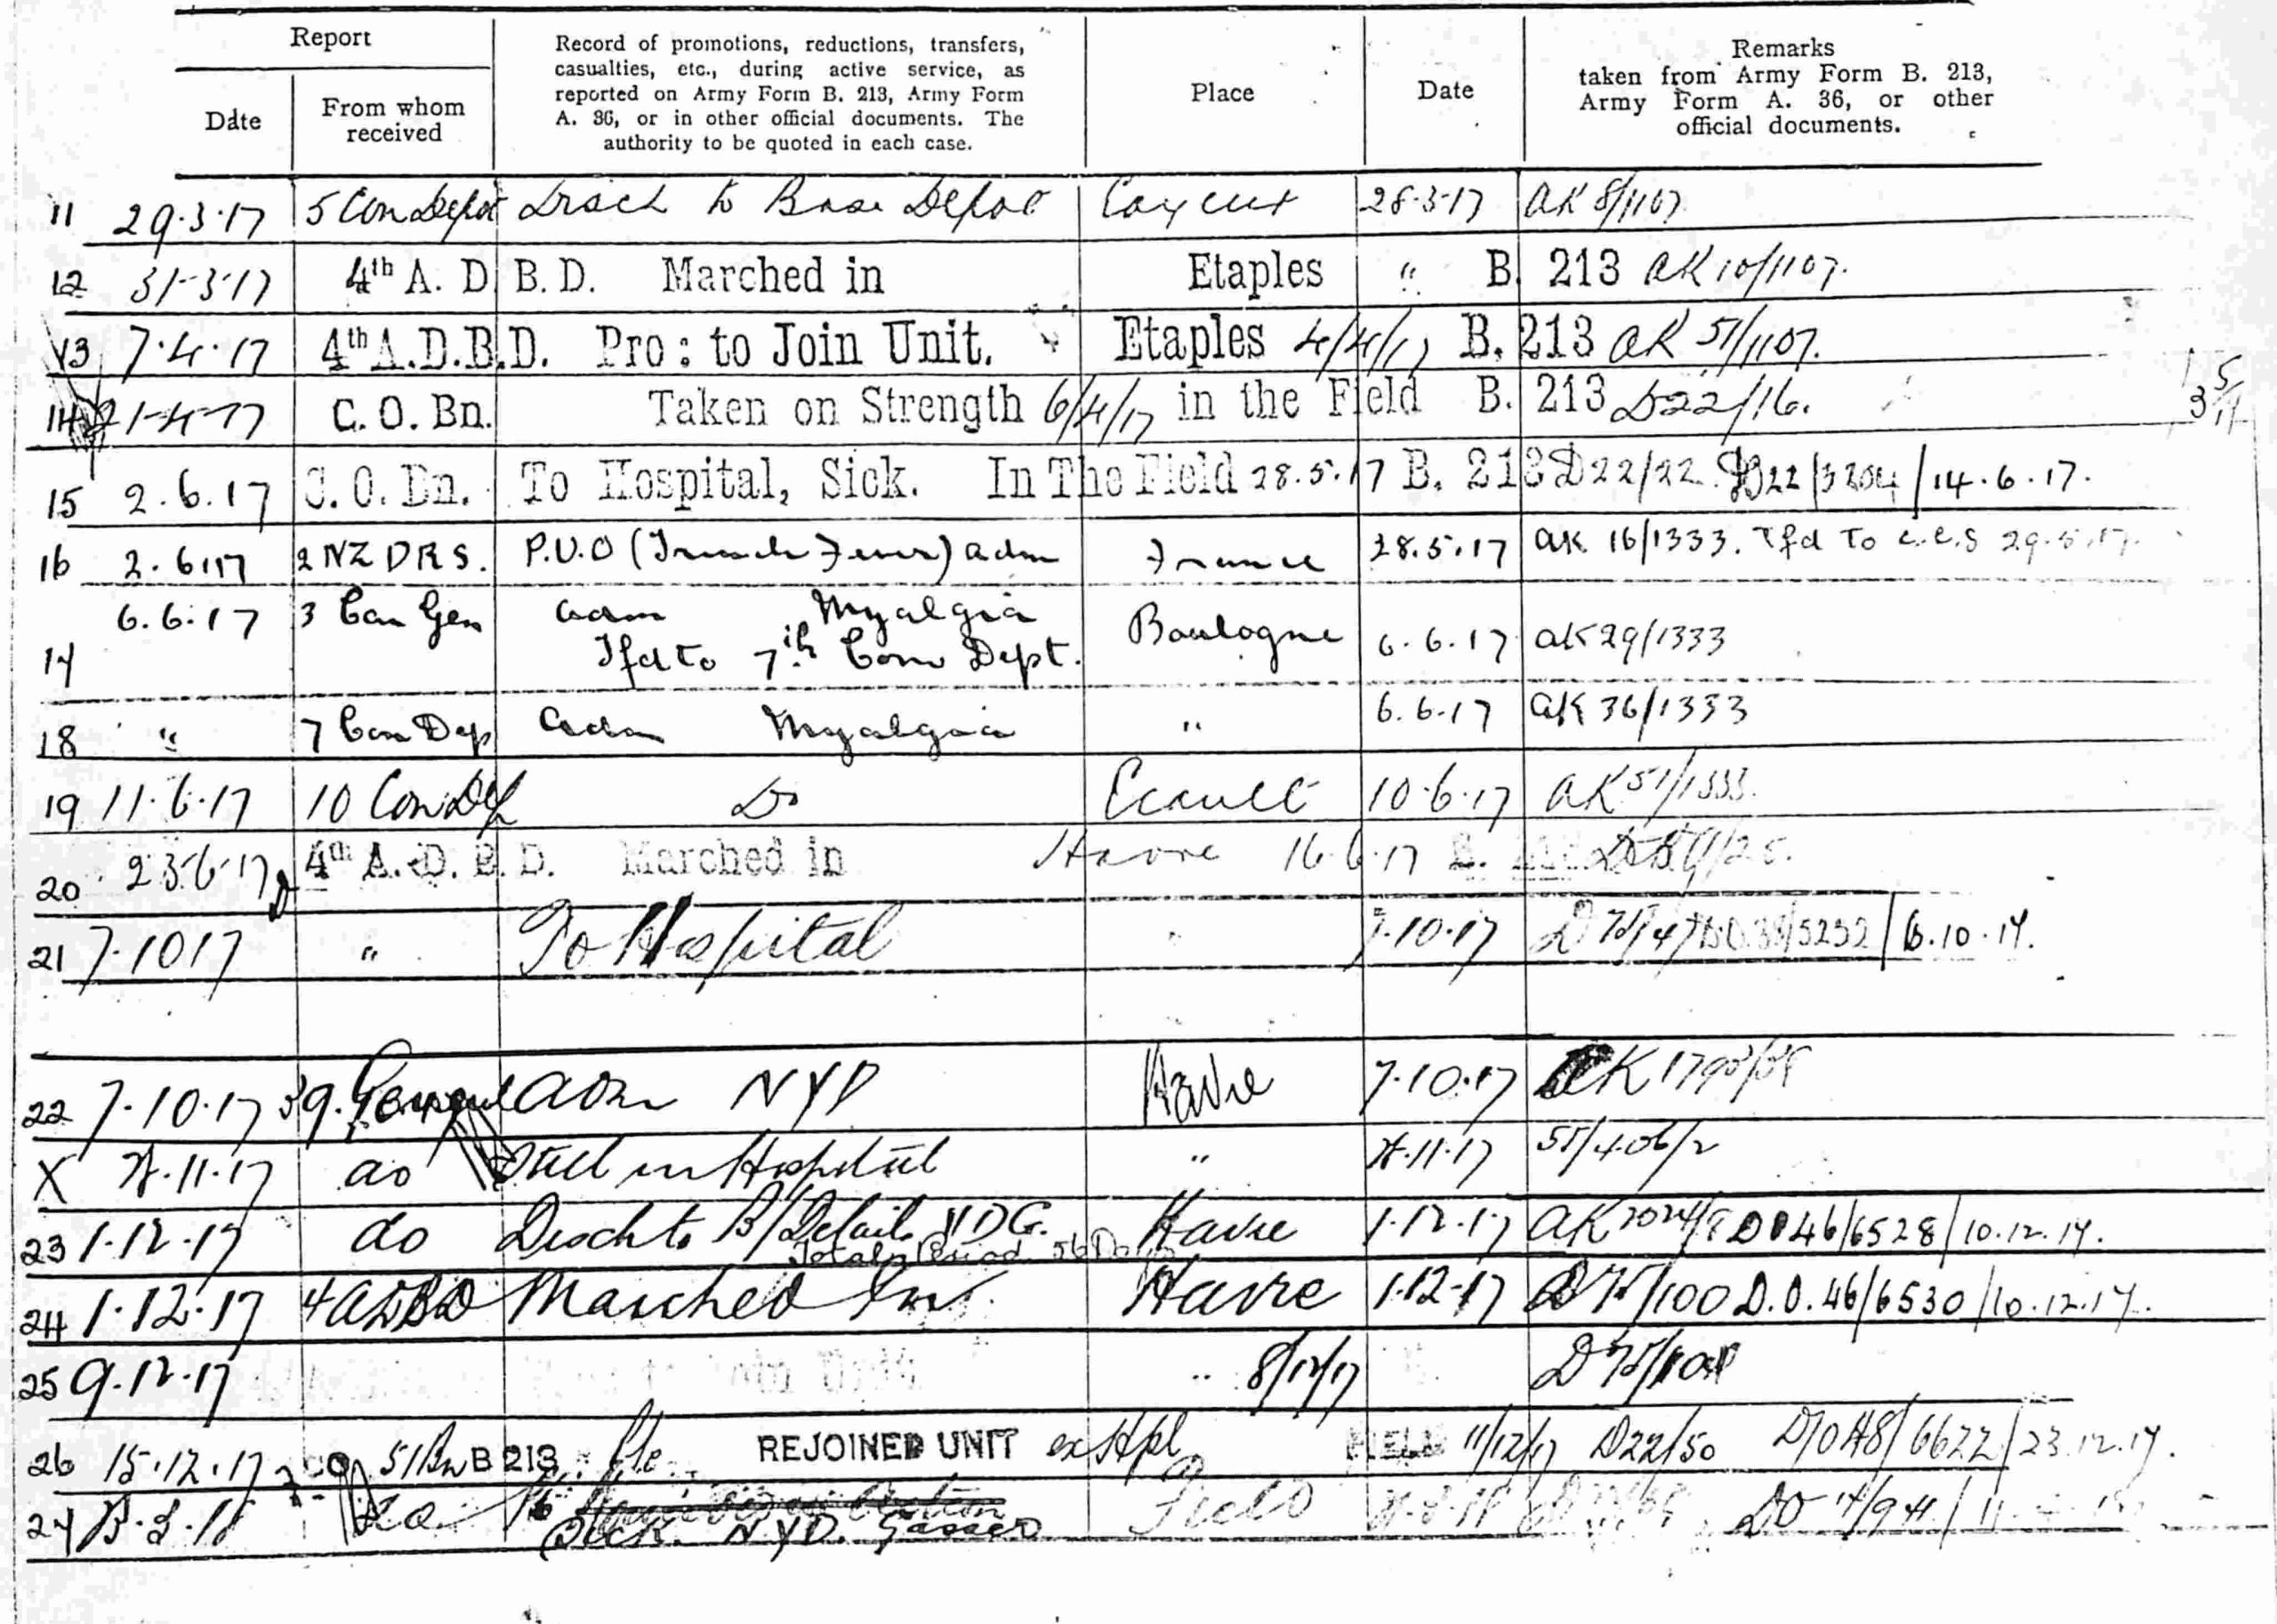 Report
Record of promotions, reductions, transfers,
casualties, etc., during active service, as
reported on Army Form B. 213, Army Form
A. 36, or in other official documents. The
authority to be quoted in each case.
Date
From whom
received
Place
Date
Remarks
taken from Army Form B. 213,
Army Form A. 36, or other
official documents.
11 29.3.17 5 Con Depot Disch to Base Depot 28.3.17 AK 8/1107
12 31-3-17 4th A. D. B. D. Marched in Etaples " B. 213 AK 10/1107.
13 7.4.17 4th A.D.B.D. Pro: to Join Unit. Etaples 4/4/17 B. 213 AK 51/1107.
14 21-4-17 C. O. Bn. Taken on Strength 6/4/17 in the Field B. 213 D22/16.
15 2.6.17 C. O. Bn. To Hospital, Sick. In The Field 28.5.17 B. 213 D22/22. /14.6.17.
16 2.6.17 2 NZ DRS. P.U.O (Trench Fever) adm France 28.5.17 AK 16/1333. Tfd To C.C.S 29.5.17.
6.6.17 3 Can Gen adm Myalgia
17 Tfd to 7th Con Dept. Boulogne 6.6.17 AK 29/1333
18 " 7 Con Dep Adm Myalgia " 6.6.17 AK 36/1333
19 11.6.17 10 Con Dep Do Ecault 10.6.17 AK 51/1333.
20 23.6.17 4th A. D. B. D. Marched in Havre 16.6.17 B.
21 7.10.17 " To Hospital 7.10.17 /5232/6.10.17.
22 7.10.17 39. General Adm NYD Havre 7.10.17 AK
X .11.17 do Still in Hospital " .11.17
23 1.12.17 do Disch to B/Details Havre 1.12.17 AK DO 46/6528/10.12.17.
Total Period 56 Days
24 1.12.17 4 ADBD Marched In. Havre 1.12.17 D75/100 D.O. 46/6530/10.12.17.
25 9.12.17 Join Unit " 8/12/17
26 15.12.17 CO 51Bn B 213 REJOINED UNIT ex Hpl FIELD 11/12/17 D22/50 D/O 48/6622/23.12.17.
27 To Field DO
Sick. NYD. Gassed